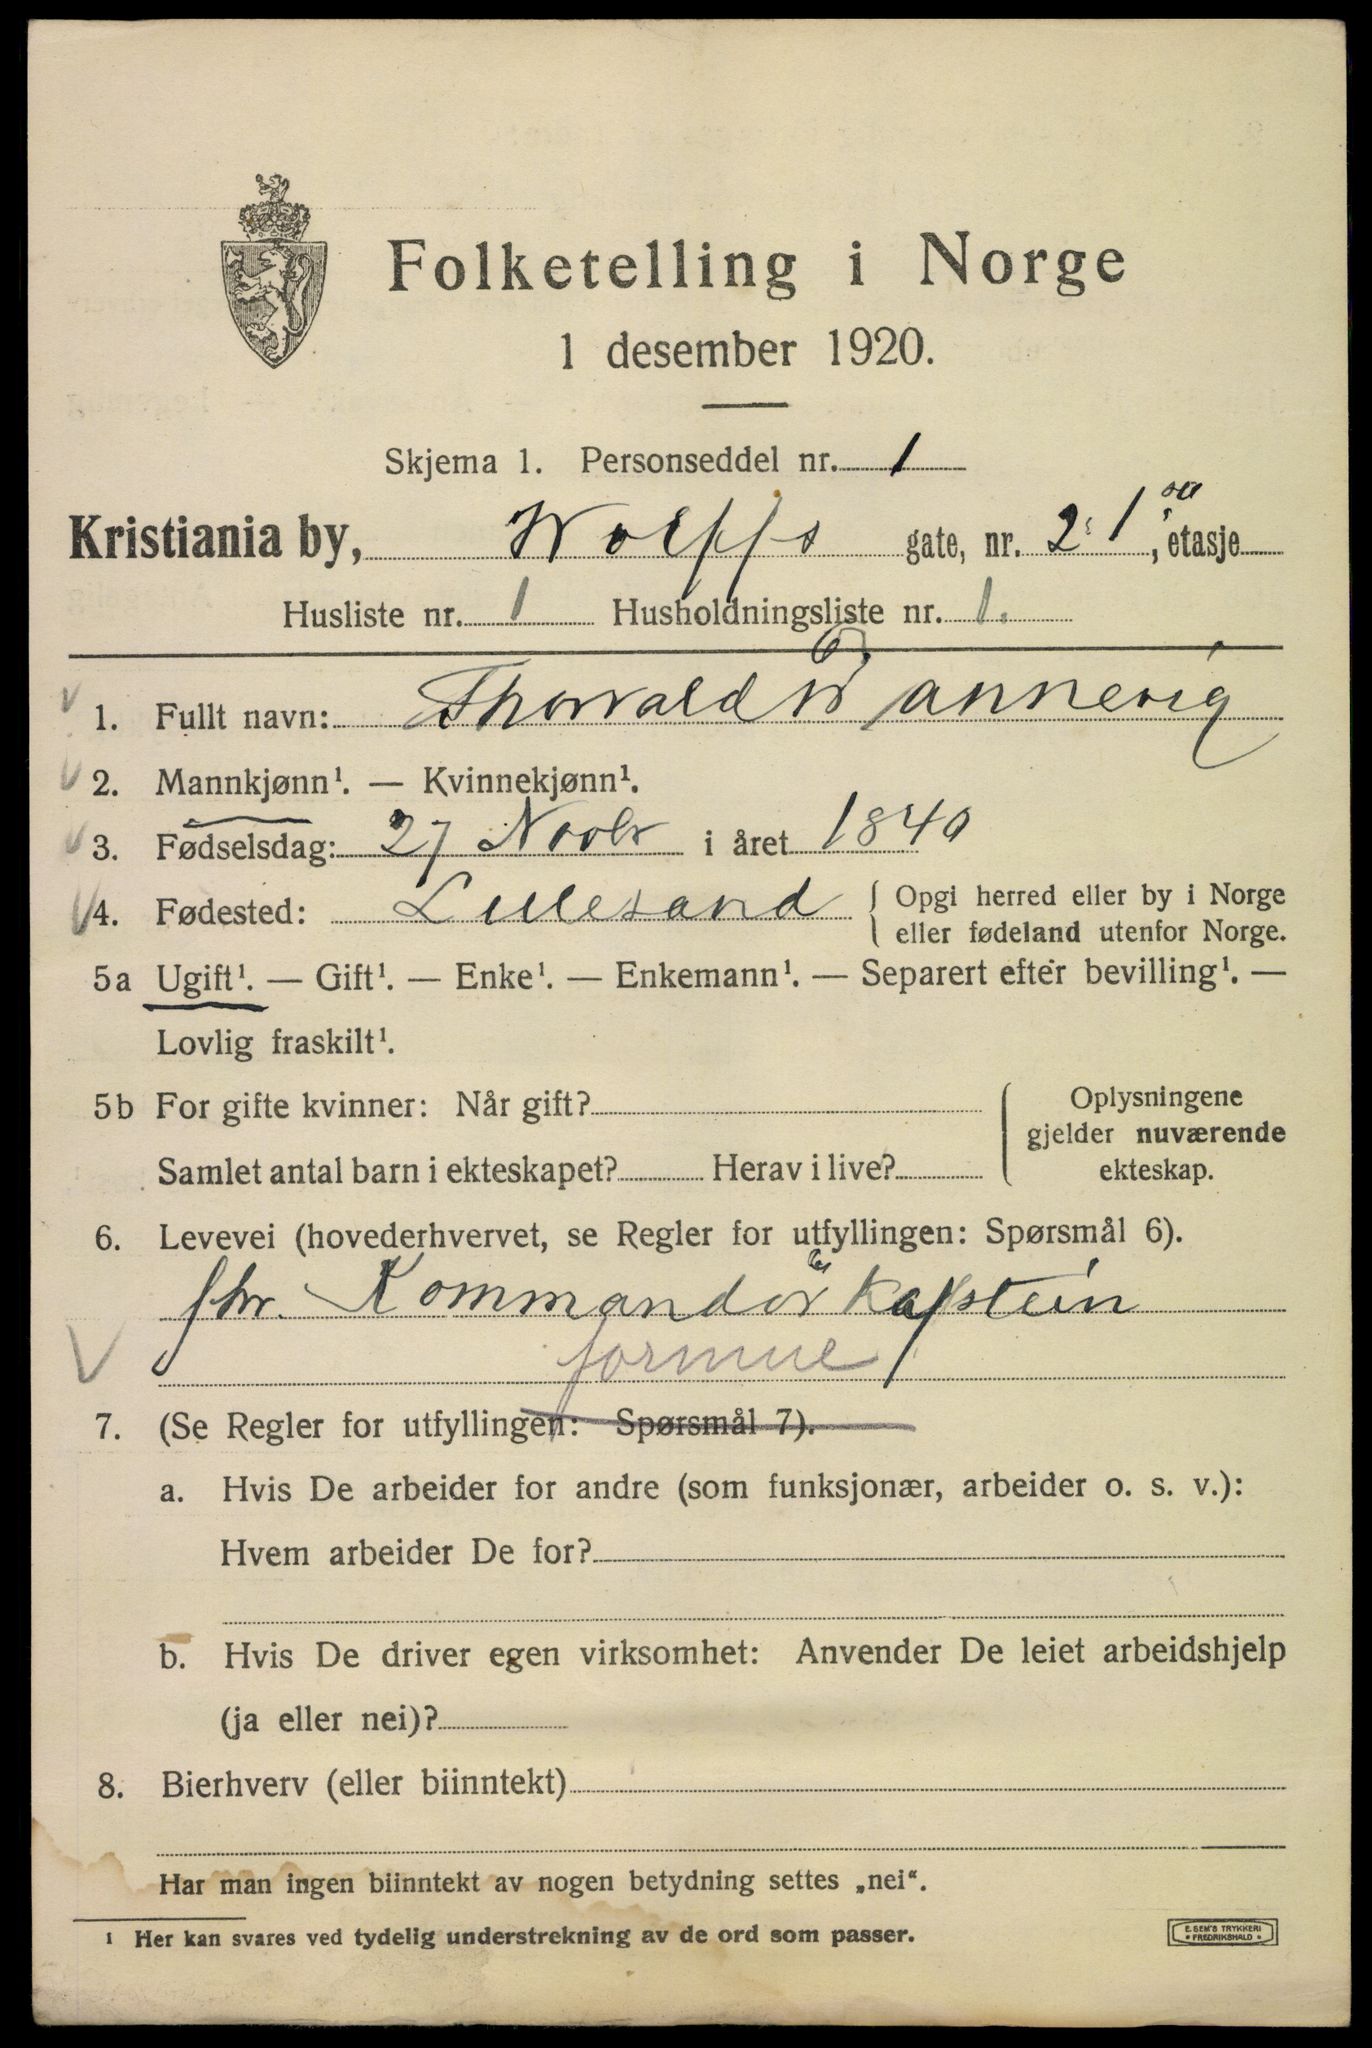 Folketelling i Norge
1 desember 1920.
Skjema 1. Personseddel nr. 1
Kristiania by, Wolffs gate, nr. 2, 1 etasje
Husliste nr. 1 Husholdningsliste nr. 1.
1. Fullt navn: Thorvald Wannevig
2. Mannkjønn¹. — Kvinnekjønn¹.
3. Fødselsdag: 27 Novbr i året 1840
4. Fødested: Lillesand { Opgi herred eller by i Norge
eller fødeland utenfor Norge.
5a Ugift¹. — Gift¹. — Enke¹. — Enkemann¹. — Separert efter bevilling¹. —
Lovlig fraskilt¹.
5b For gifte kvinner: Når gift?
Samlet antal barn i ekteskapet? Herav i live?
Oplysningene
gjelder nuværende
ekteskap.
6. Levevei (hovederhvervet, se Regler for utfyllingen: Spørsmål 6).
fhv. Kommandørkaptein
formue
7. (Se Regler for utfyllingen: Spørsmål 7).
a. Hvis De arbeider for andre (som funksjonær, arbeider o. s. v.):
Hvem arbeider De for?
b. Hvis De driver egen virksomhet: Anvender De leiet arbeidshjelp
(ja eller nei)?
8. Bierhverv (eller biinntekt)
Har man ingen biinntekt av nogen betydning settes „nei“.
¹ Her kan svares ved tydelig understrekning av de ord som passer.
E. SEM'S TRYKKERI
* FREDRIKSHALD *